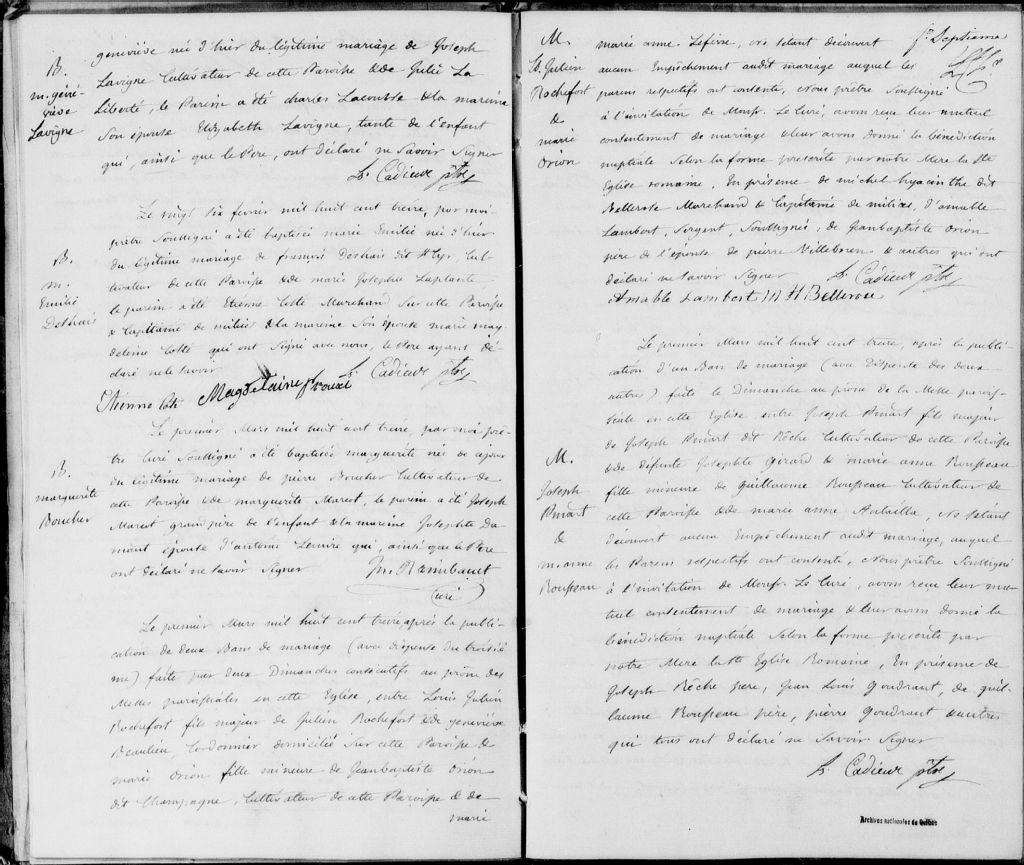 B.
m. géné-
viève
Lavigne
géneviève née d'hier du légitime mariage de Joseph
Lavigne Cultivateur de cette Paroisse & de Julie La
liberté, le Parein a été charles Lacourse & la mareine
Son épouse Elizabeth Lavigne, tante de l'enfant
qui, ainsi que le Pere, ont déclaré ne Savoir Signer
L. Cadieux ptre
B.
m.
Emilie
Deshais
Le vingt six fevrier mil huit cent treize, par moi
prêtre Soussigné a été baptisée marie Emilie née d'hier
du légitime mariage de françois Deshais dit St Cyr, Cul-
tivateur de cette Paroisse & de marie Josephte Laplante
le parein a été Etienne Cotté Marchand Sur cette Paroisse
& Capitaine de milice & la mareine Son épouse marie mag-
deleine Cotté qui ont Signé avec nous, le Pere ayant dé-
claré ne le Savoir
L. Cadieux ptre
Etienne Coté Magdelaine Proux
B.
marguérite
Boucher
Le premier Mars mil huit cent treize, par moi prê-
tre Curé Soussigné a été baptisée marguerite née ce ajour
du légitime mariage de pierre Boucher Cultivateur de
cette Paroisse & de marguerite Marcot, le parein a été Joseph
Marcot grand père de l'enfant & la mareine Josephte Du-
mont épouse d'antoine Lemire qui, ainsi que le Pere
ont déclaré ne Savoir Signer
Jn. Raimbault
Curé
Le premier Mars mil huit cent treize après la publi-
cation de deux Bans de mariage (avec dispense du troisié
me) faite par deux Dimanches consécutifs au prône des
Messes paroissiales en cette Eglise, entre Louis Julien
Rochefort fils majeur de Julien Rochefort & de geneviève
Beaulieu, Cordonnier domicilié Sur cette Paroisse &
marie Orion fille mineure de Jeanbaptiste Orion
dit Champagne, Cultivateur de cette Paroisse & de
marie
M.
Ls. Julien
Rochefort
&
marie
Orion
fo Septieme
marie anne Lefevre, ne S'étant découvert
aucun Empêchement audit mariage auquel les
parens respectifs ont contenté, Nous prêtre Soussigné
à l'invitation de Mons. Le Curé, avons reçu leur mutuel
contentement de mariage & leur avons donné la bénédiction
nuptiale Selon la forme prescrite par notre Mere la Ste
Eglise romaine, En présense de michel hyacinthe dit
Bellerose Marchand & Capitaine de milices, d'amable
Lambert, Sergent, Soussignés, de Jeanbaptiste Orion
pere de l'épouse de pierre & autres qui ont
déclaré ne Savoir Signer
L. Cadieux ptre
Amable Lambert M H Bellerose
M.
Joseph
Pinart
&
m. anne
Rousseau
Le premier Mars mil huit cent treize, après la publi-
cation d'un Ban de mariage (avec Dispense des deux
autres) faite le Dimanche au prône de la Messe parois-
siale en cette Eglise entre Joseph Pinart fils majeur
de Joseph Pinart dit Rôche Cultivateur de cette Paroisse
& de défunte Josephte Girard & marie anne Rousseau
fille mineure de guillaume Rousseau Cultivateur de
cette Paroisse & de marie anne, ne S'étant
découvert aucun Empêchement audit mariage, auquel
les Parens respectifs ont contenté, Nous prêtre Soussigné
à l'invitation de Mons. Le Curé, avons reçu leur mu-
tuel contentement de mariage & leur avons donné la
bénédiction nuptiale Selon la forme prescrite par
notre Mere la Ste Eglise Romaine, En présense de
Joseph Rôche pere, Jean Louis Goudrant, de guil-
laume Rousseau père, pierre Goudrant & autres
qui tous ont déclaré ne Savoir Signer
L. Cadieux ptre
Archives nationales du Québec